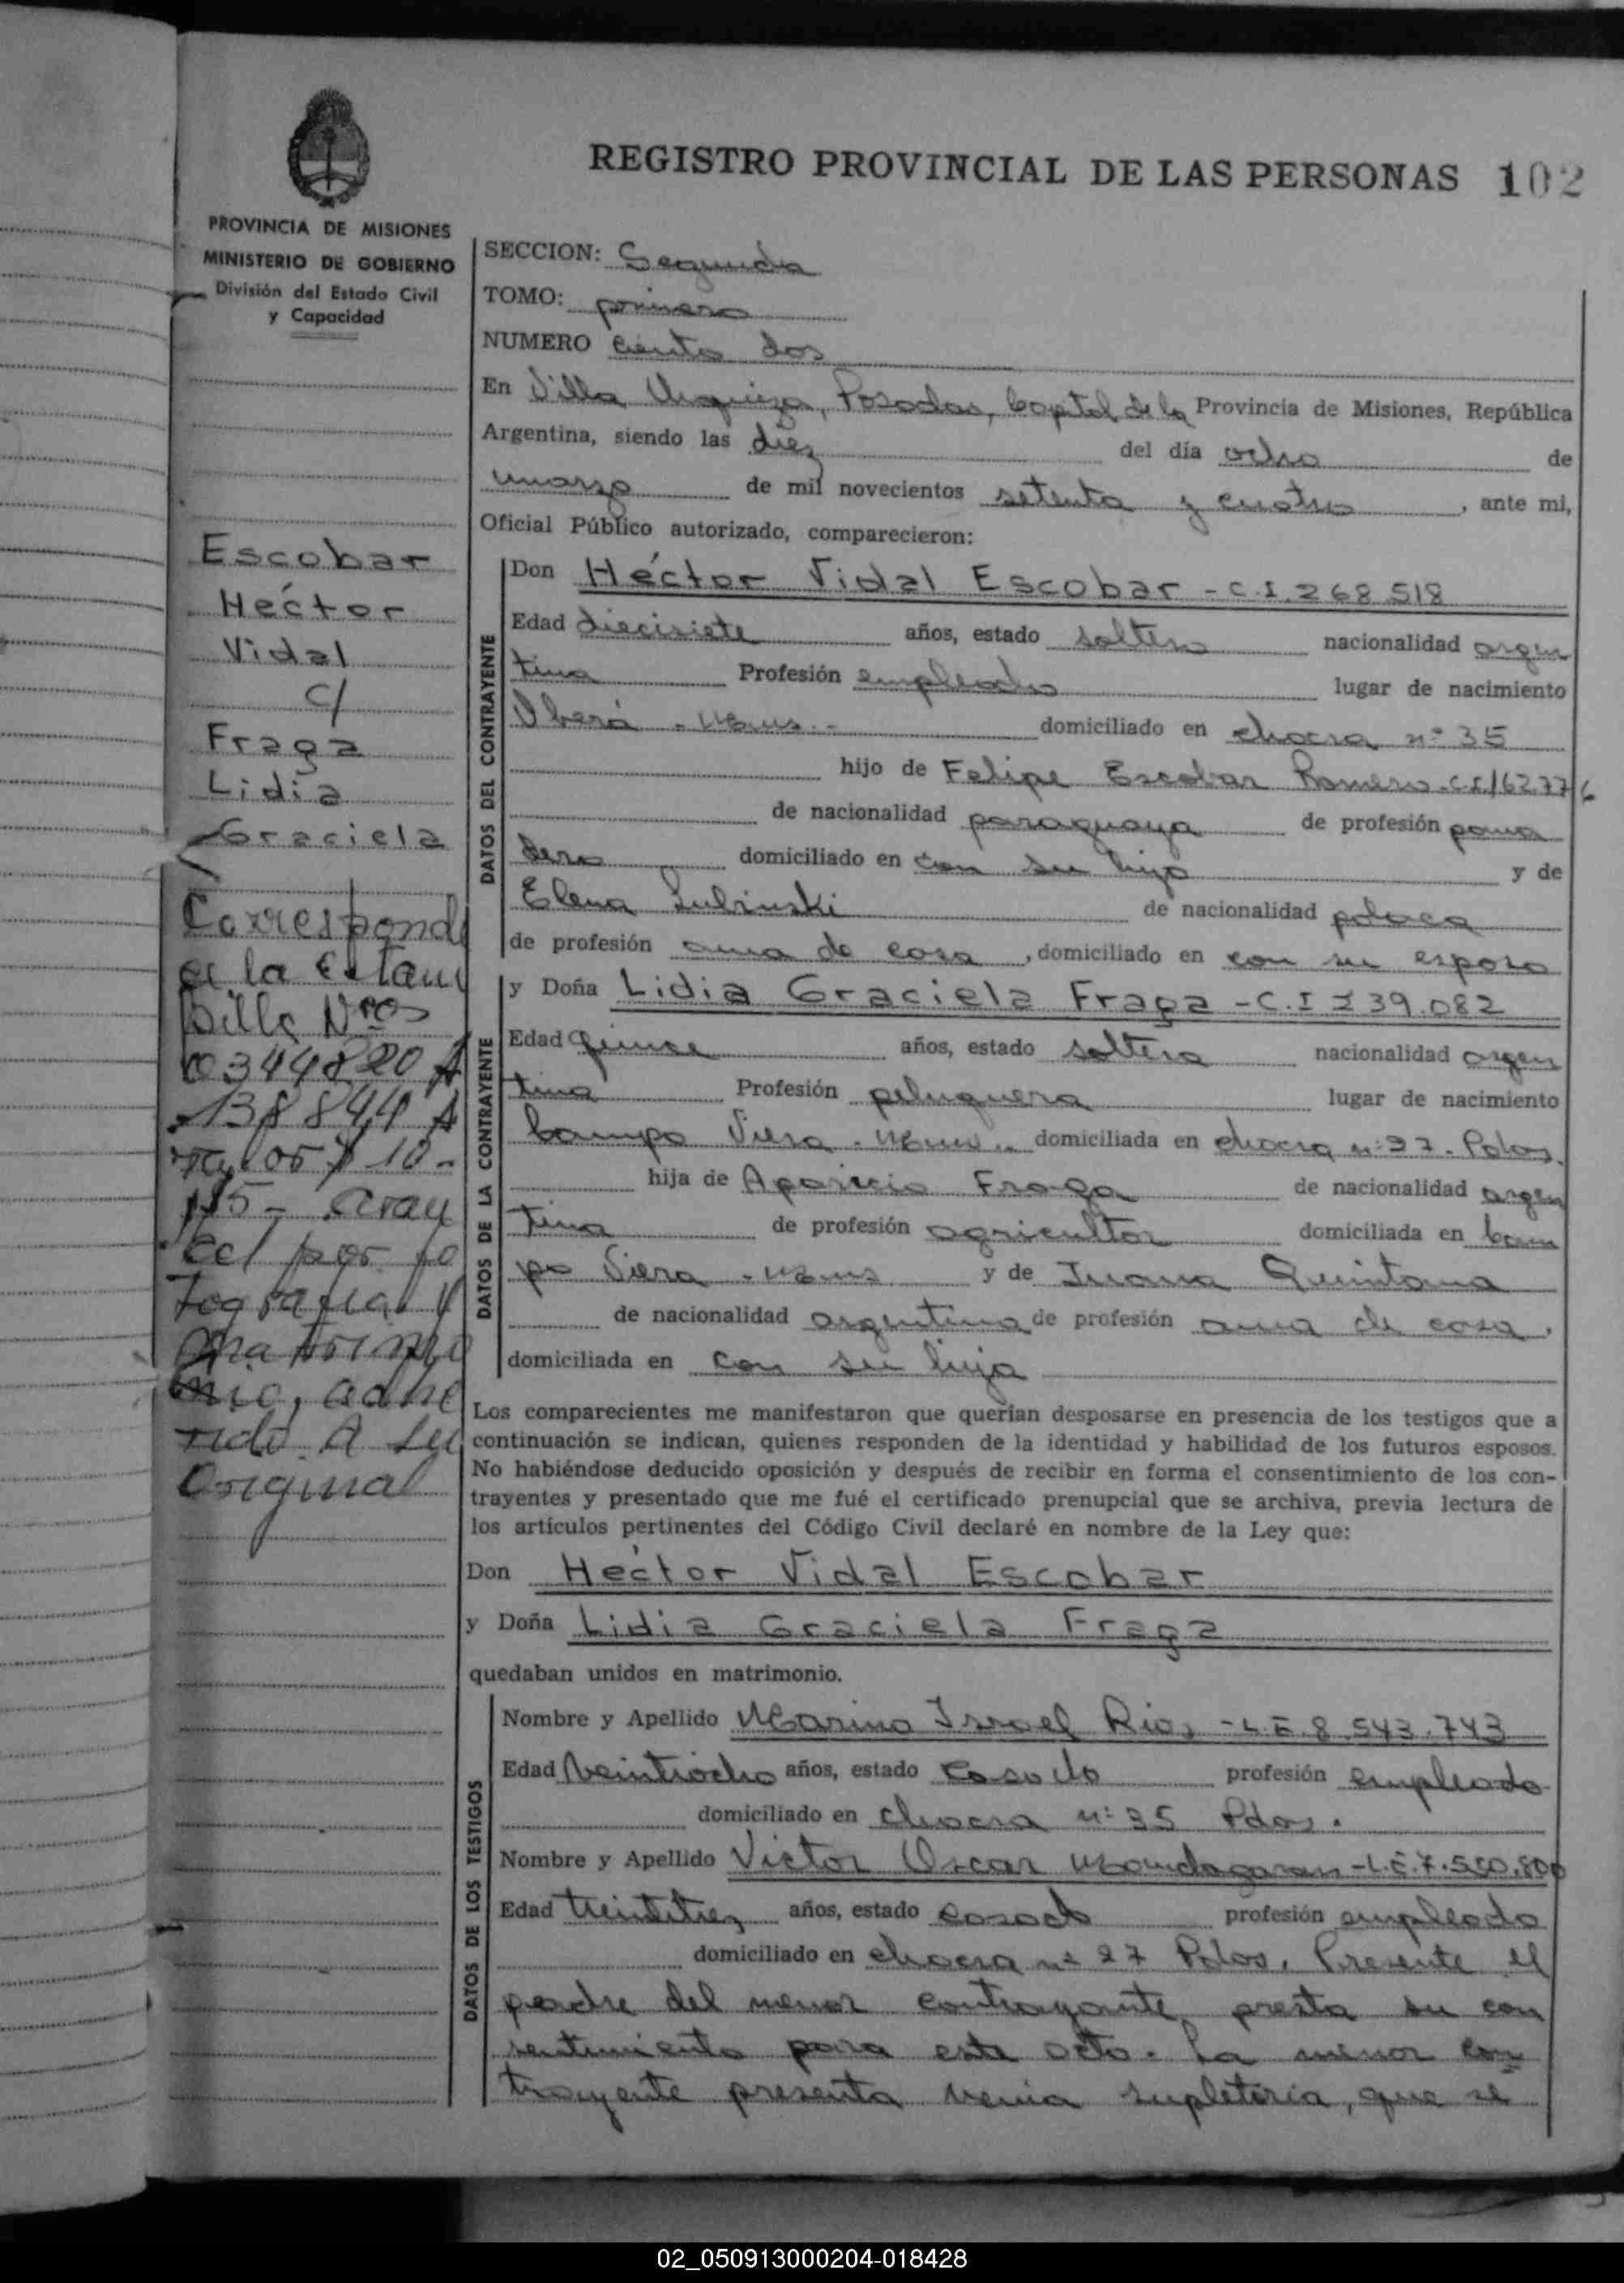 REGISTRO PROVINCIAL DE LAS PERSONAS 102
PROVINCIA DE MISIONES
MINISTERIO DE GOBIERNO
División del Estado Civil
y Capacidad
SECCION: Segunda
TOMO: primero
NUMERO ciento dos
En Villa Urquiza, Posadas, Capital de la Provincia de Misiones, República
Argentina, siendo las diez del día ocho de
marzo de mil novecientos setenta y cuatro, ante mi,
Oficial Público autorizado, comparecieron:
Escobar
Héctor
Vidal
c/
Fraga
Lidia
Graciela
Corresponde
a la Estam
pilla Nros
0344820 A
138844 A
valor $ 10-
$15- aran
cel por fo
tografia y
matrimo
nio, adhe
rido A su
Original
DATOS DEL CONTRAYENTE
Don Héctor Vidal Escobar - C.I. 268.518
Edad diecisiete años, estado soltero nacionalidad argen
tina Profesión empleado lugar de nacimiento
Oberá - Mnes. - domiciliado en chacra nº 35
hijo de Felipe Escobar Romero - C.I. 162.776
de nacionalidad paraguaya de profesión pana
dero domiciliado en con su hijo y de
Elena Lubinski de nacionalidad polaca
de profesión ama de casa, domiciliado en con su esposo
DATOS DE LA CONTRAYENTE
y Doña Lidia Graciela Fraga - C.I 239.082
Edad Quince años, estado soltera nacionalidad argen
tina Profesión peluquera lugar de nacimiento
Campo Viera - Mnes.. domiciliada en chacra nº 37 - Pdas.
hija de Aparicio Fraga de nacionalidad argen
tina de profesión agricultor domiciliada en Cam
po Viera - Mnes y de Juana Quintana
de nacionalidad argentina de profesión ama de casa.
domiciliada en con su hija
Los comparecientes me manifestaron que querían desposarse en presencia de los testigos que a
continuación se indican, quienes responden de la identidad y habilidad de los futuros esposos.
No habiéndose deducido oposición y después de recibir en forma el consentimiento de los con-
trayentes y presentado que me fué el certificado prenupcial que se archiva, previa lectura de
los artículos pertinentes del Código Civil declaré en nombre de la Ley que:
Don Héctor Vidal Escobar
y Doña Lidia Graciela Fraga
quedaban unidos en matrimonio.
DATOS DE LOS TESTIGOS
Nombre y Apellido Marino Israel Rios - L.E 8.543.743
Edad Veintiocho años, estado casado profesión empleado
domiciliado en chacra nº 35 Pdas.
Nombre y Apellido Victor Oscar Mondagaran - L.E. 7.550.800
Edad treintitrez años, estado casado profesión empleado
domiciliado en chacra nº 27 Pdas. Presente el
padre del menor contrayente presta su con
sentimiento para este acto. La menor con
trayente presenta venia supletoria, que se
02_050913000204-018428